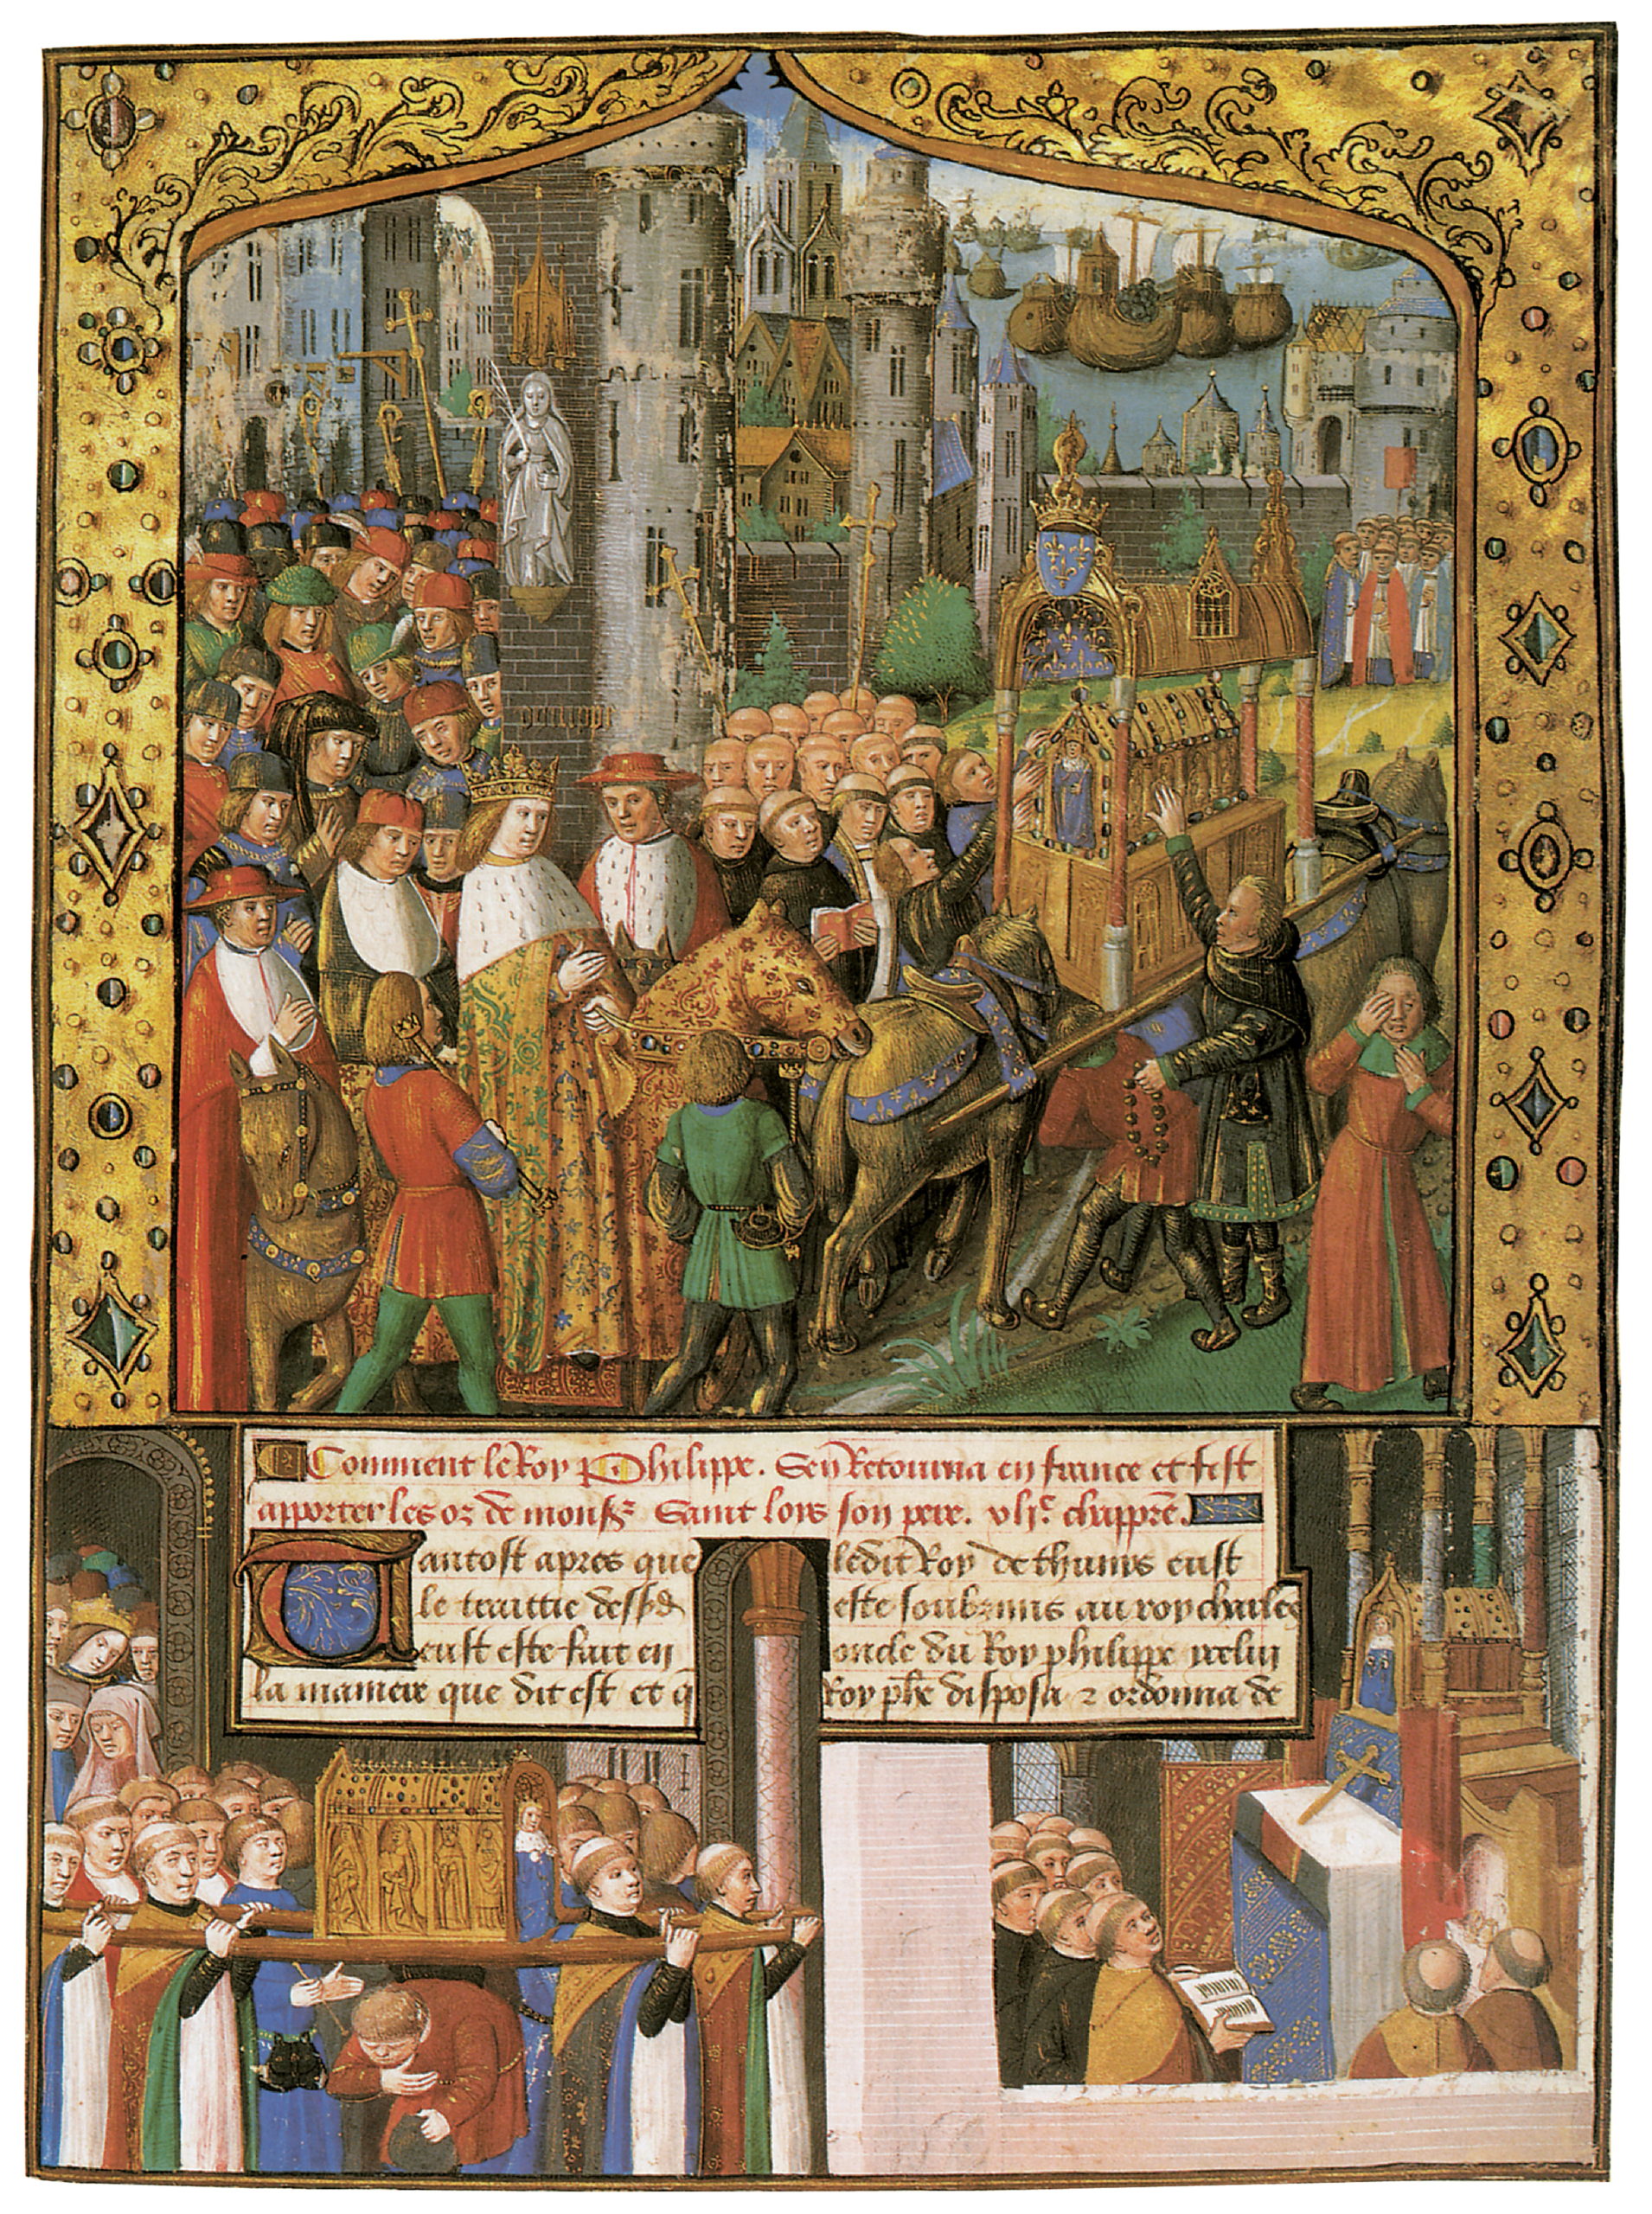 Comment le Roy Philippe. Sen Retourna en france et fist
apporter les os de monss.r Saint loys son pere. vlij.e chappre.
Tantost apres que ledit Roy de thunes eust
le traittie dessd este soubzmis au roy charles
eust este fait en oncle du Roy philippe ycelui
la maniere que dit est et q Roy phe disposa z ordonna de